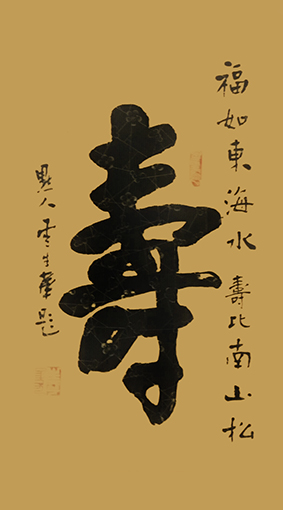 福如東海水 壽比南山松
壽
人 題